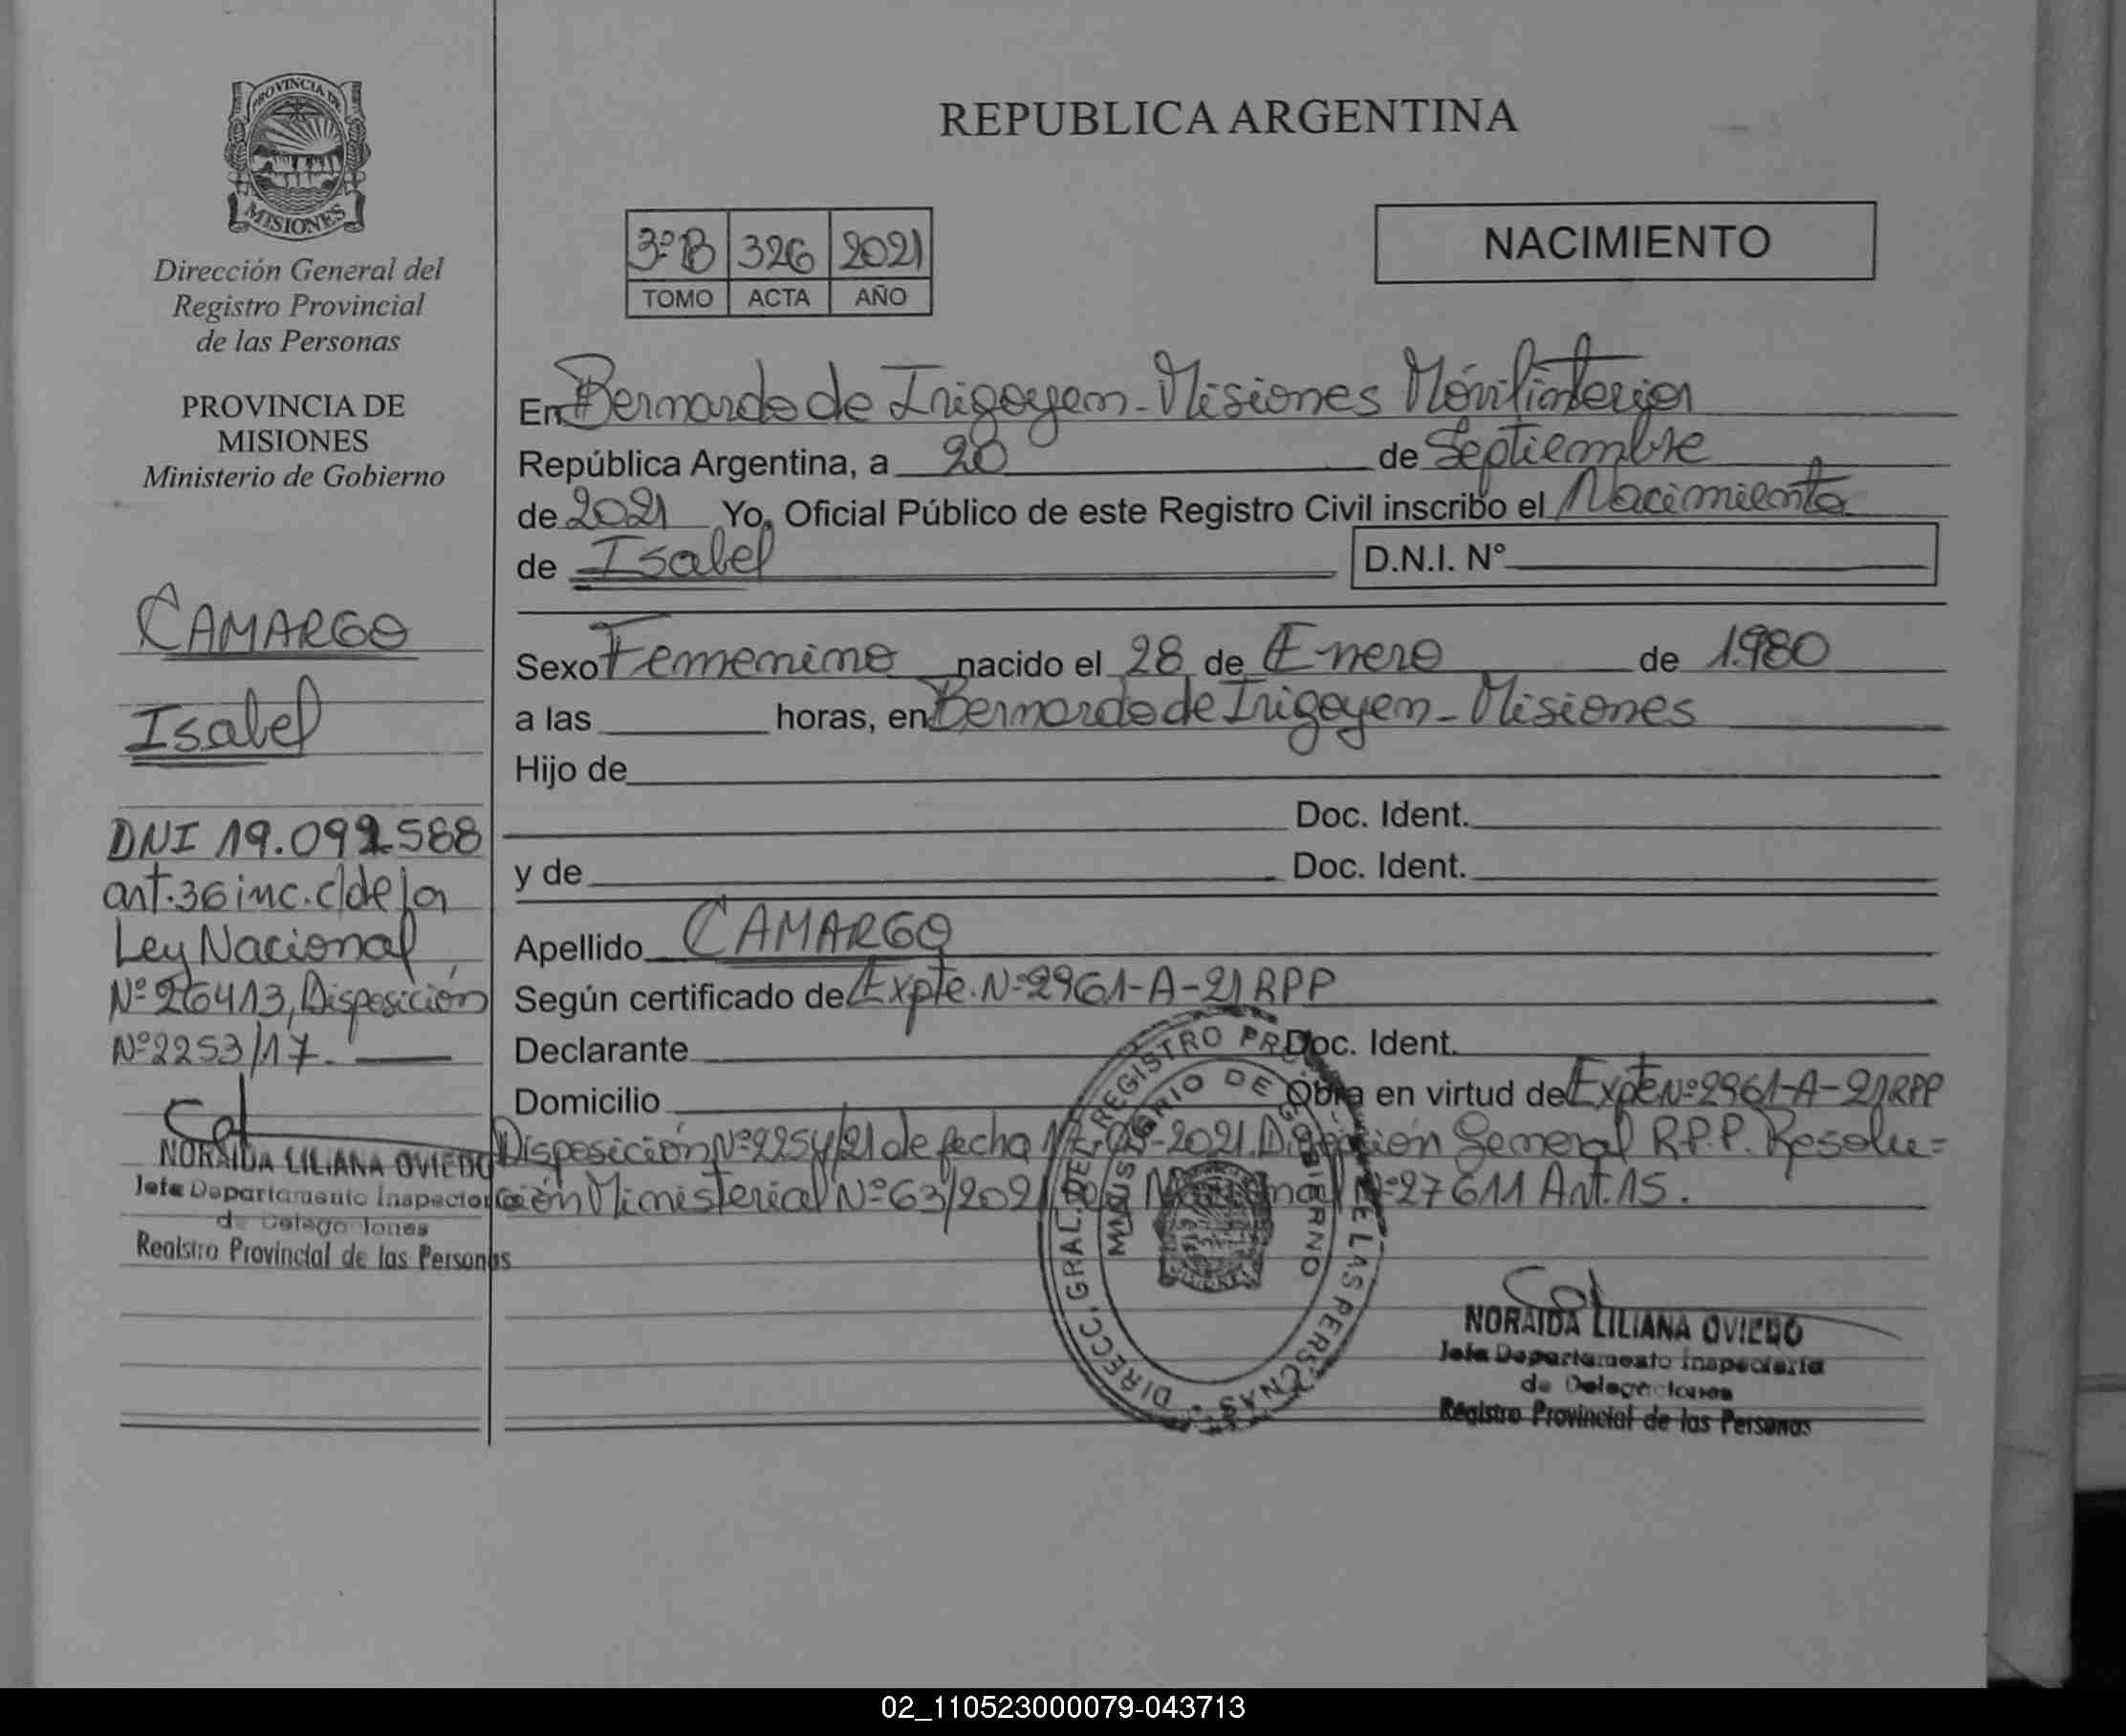 PROVINCIA DE
MISIONES
Dirección General del
Registro Provincial
de las Personas
PROVINCIA DE
MISIONES
Ministerio de Gobierno
CAMARGO
Isabel
DNI 19.092.588
art. 36 inc. c/de la
Ley Nacional
Nº 26413, Disposición
Nº 2253/17.
NORAIDA LILIANA OVIEDO
Jefa Departamento Inspectoría
de Delegaciones
Registro Provincial de las Personas
REPUBLICA ARGENTINA
3º B 326 2021
TOMO ACTA AÑO
NACIMIENTO
En Bernardo de Irigoyen - Misiones Móvil interior
República Argentina, a 20 de Septiembre
de 2021 Yo, Oficial Público de este Registro Civil inscribo el Nacimiento
de Isabel D.N.I. Nº
Sexo Femenino nacido el 28 de Enero de 1.980
a las horas, en Bernardo de Irigoyen - Misiones
Hijo de
Doc. Ident.
y de Doc. Ident.
Apellido CAMARGO
Según certificado de Expte. Nº 2961-A-21 RPP
Declarante Doc. Ident.
Domicilio Obra en virtud de Expte Nº 2961-A-21 RPP
Disposición Nº 2254/21 de fecha 2021. Dirección General R.P.P. Resolu=
ción Ministerial Nº 63/2021 Nº 27611 Art. 15.
DIRECC. GRAL. DEL REGISTRO PROV. DE LAS PERSONAS
MINISTERIO DE GOBIERNO
NORAIDA LILIANA OVIEDO
Jefa Departamento Inspectoría
de Delegaciones
Registro Provincial de las Personas
02_110523000079-043713